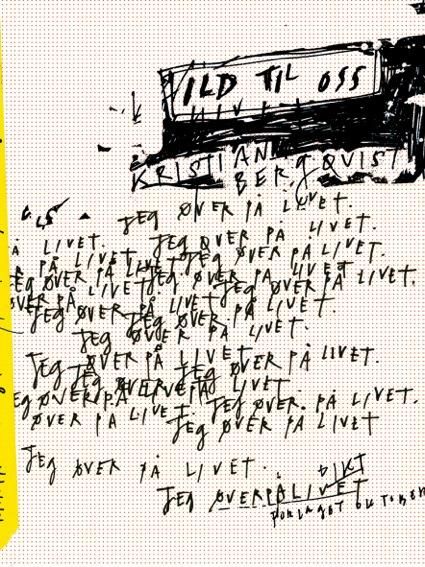 ILD TIL OSS
KRISTIAN
BERGQVIST
JEG ØVER PÅ LIVET.
LIVET. JEG ØVER PÅ LIVET.
PÅ LIVET JEG ØVER PÅ LIVET.
JEG ØVER PÅ LIVET JEG ØVER PÅ LIVET
ØVER PÅ LIVET. JEG ØVER PÅ LIVET.
JEG ØVER PÅ LIVET. JEG ØVER PÅ LIVET.
JEG ØVER PÅ LIVET.
JEG ØVER PÅ LIVET. JEG ØVER PÅ LIVET.
JEG ØVER PÅ LIVET.
JEG ØVER PÅ LIVET. JEG ØVER PÅ LIVET.
ØVER PÅ LIVET. JEG ØVER PÅ LIVET
JEG ØVER PÅ LIVET.
DIKT
JEG ØVER PÅ LIVET
FORLAGET OKTOBER